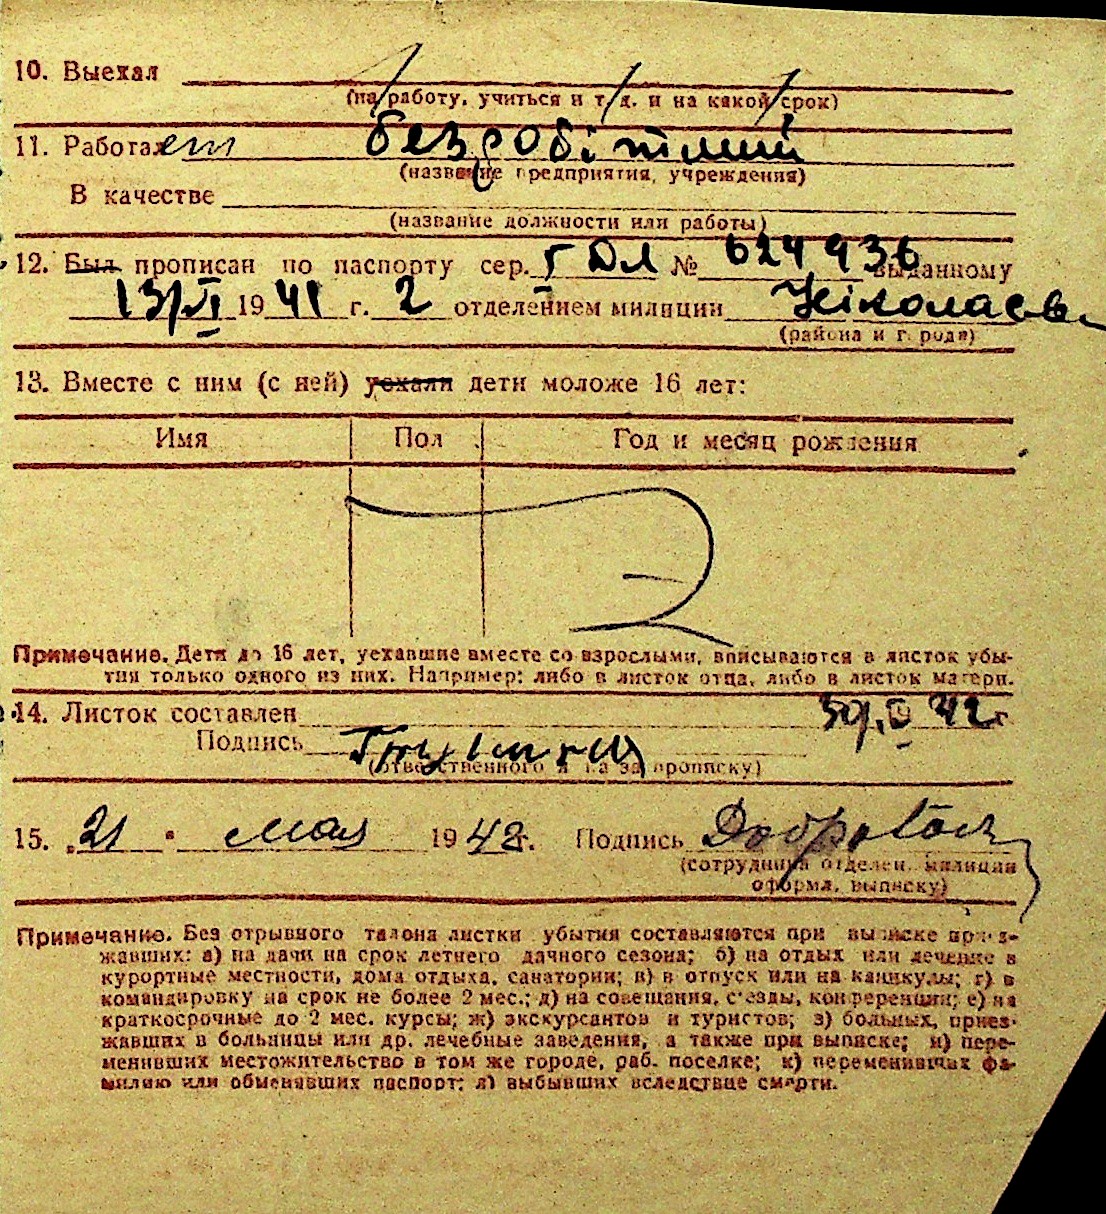 10. Выехал
(на работу, учиться и т. д. и на какой срок)
11. Работает безробітний
(название предприятия, учреждения)
В качестве
(название должности или работы)
12. Был прописан по паспорту сер. № 624936 выданному
13/VI 1941 г. 2 отделением милиции
(района и города)
13. Вместе с ним (с ней) уехали дети моложе 16 лет:
Имя Пол Год и месяц рождения
Примечание. Дети до 16 лет, уехавшие вместе со взрослыми, вписываются в листок убы-
тия только одного из них. Например: либо в листок отца, либо в листок матери.
14. Листок составлен 42 г
Подпись
(ответственного лица за прописку)
15. „21 " мая 1942 г. Подпись
(сотрудника отделен. милиции
оформл. выписку)
Примечание. Без отрывного талона листки убытия составляются при выписке приез-
жавших: а) на дачи на срок летнего дачного сезона; б) на отдых или лечение в
курортные местности, дома отдыха, санатории; в) в отпуск или на каникулы; г) в
командировку на срок не более 2 мес.; д) на совещания, с'езды, конференции; е) на
краткосрочные до 2 мес. курсы; ж) экскурсантов и туристов; з) больных, приез-
жавших в больницы или др. лечебные заведения, а также при выписке; и) пере-
менивших местожительство в том же городе, раб. поселке; к) переменивших фа-
милию или обменявших паспорт; л) выбывших вследствие смерти.